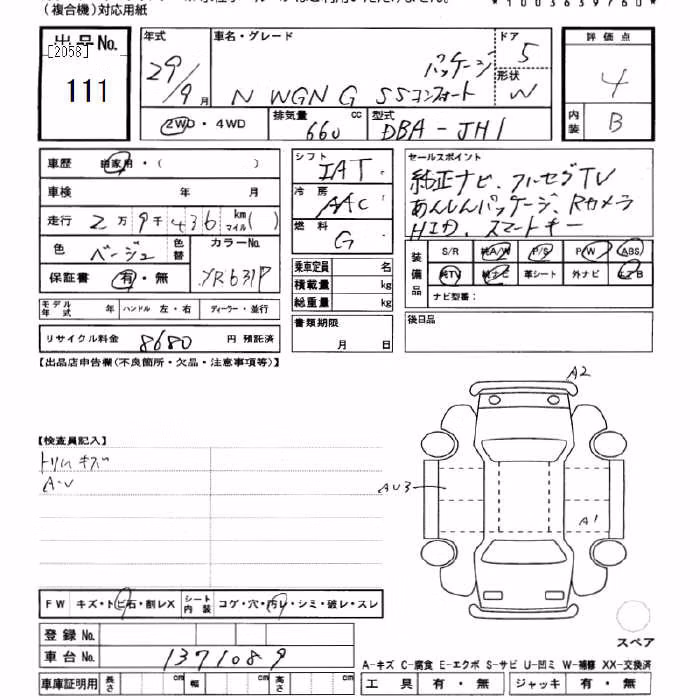 (複合機)対応用紙
出品No.
[2058]
111
年式
29/9月
車名・グレード
パッケージ
N WGN G SSコンフォート
ドア
5
形状
W
評価点
4
内装
B
2WD・4WD
排気量
660 cc
型式
DBA-JH1
車歴 自家用・( )
車検 年 月
走行 2万9千436 km マイル( )
色 ベージュ 色替 カラーNo.
YR631P
保証書 有・無
モデル年式 年 ハンドル 左・右 ディーラー・並行
リサイクル料金 8680 円 預託済
シフト
IAT
冷房
AAC
燃料
G
乗車定員 名
積載量 kg
総重量 kg
書類期限
月 日
セールスポイント
純正ナビ、フルセグTV
あんしんパッケージ、Rカメラ
HID、スマートキー
装備品
S/R 純A/W P/S P/W ABS
純TV 純ナビ 革シート 外ナビ エアB
ナビ型番:
後日品
【出品店申告欄(不良箇所・欠品・注意事項等)】
【検査員記入】
トリムキズ
A・U
A2
AU3
A1
FW キズ・トビ石・割レX シート内装 コゲ・穴・汚レ・シミ・破レ・スレ
登録No.
車台No. 1371089
車庫証明用 長さ cm 幅 cm 高さ cm
スペア
A-キズ C-腐食 E-エクボ S-サビ U-凹ミ W-補修 XX-交換済
工具 有・無 ジャッキ 有・無